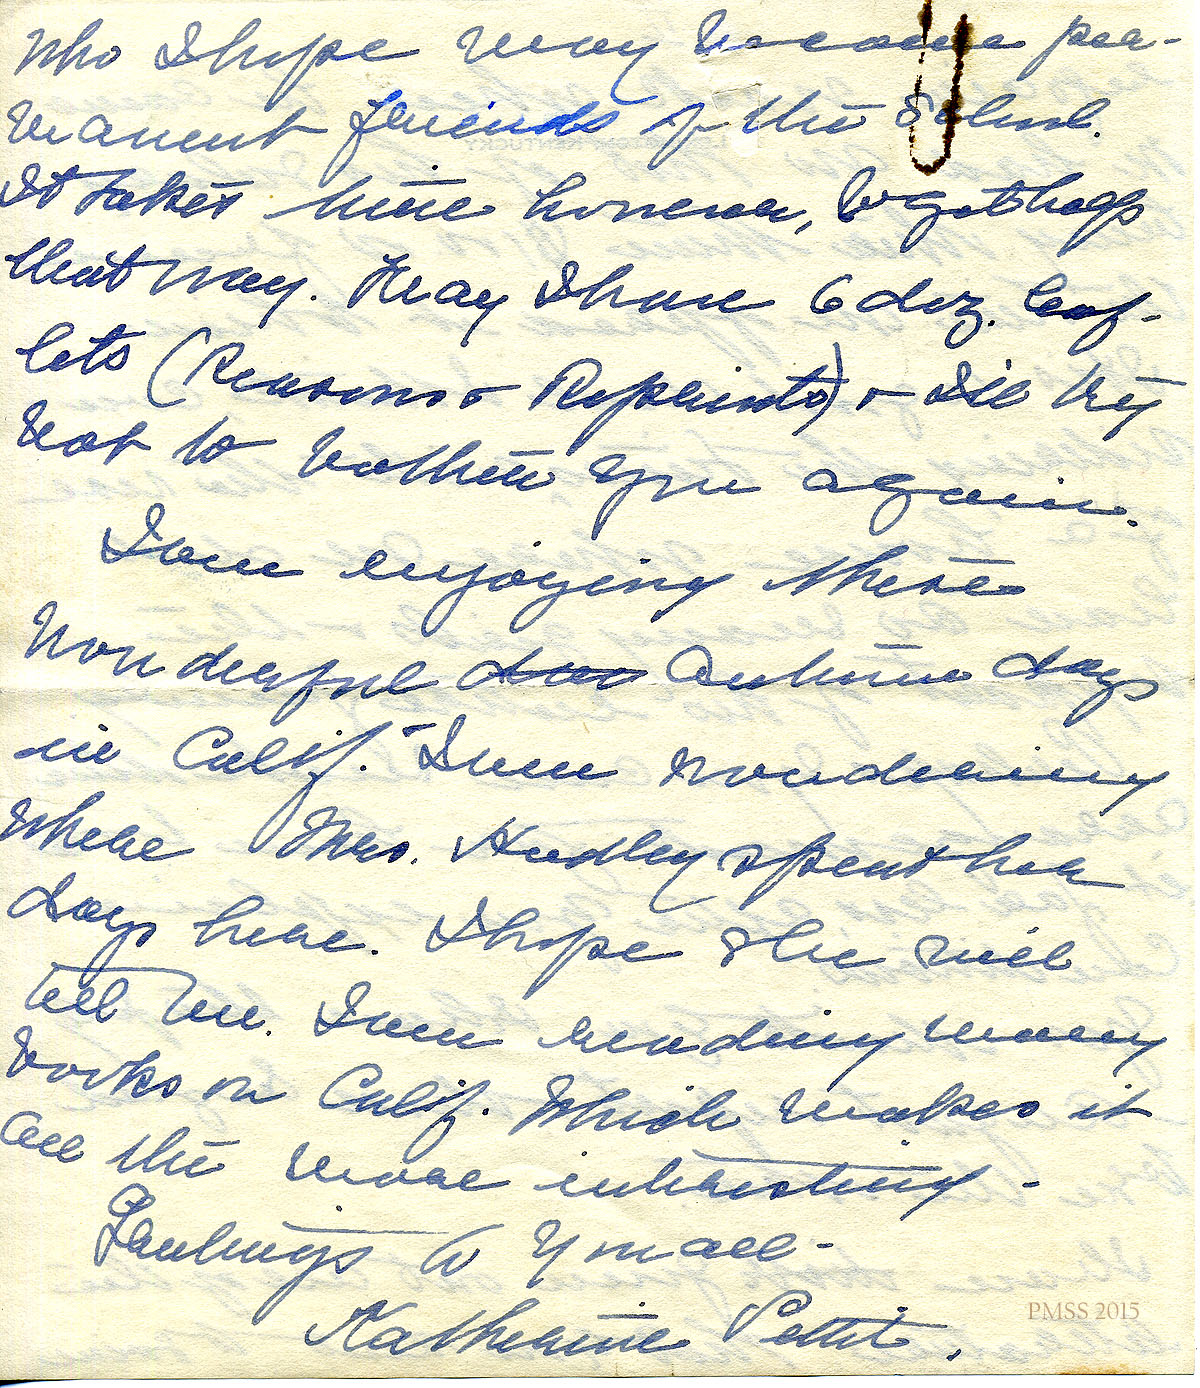 who I hope may become per-
manent friends of the School.
It takes time however, to get help
that way. May I have 6 doz. leaf-
lets (Reasons & Reprints) & I'll try
not to bother you again.
I am enjoying these
wonderful autumn days
in Calif. - I am wondering
where Mrs. Hadley spent her
days here. I hope she will
tell me. I am reading many
books on Calif. which makes it
all the more interesting -
Greetings to you all -
Katherine Pettit.
PMSS 2015